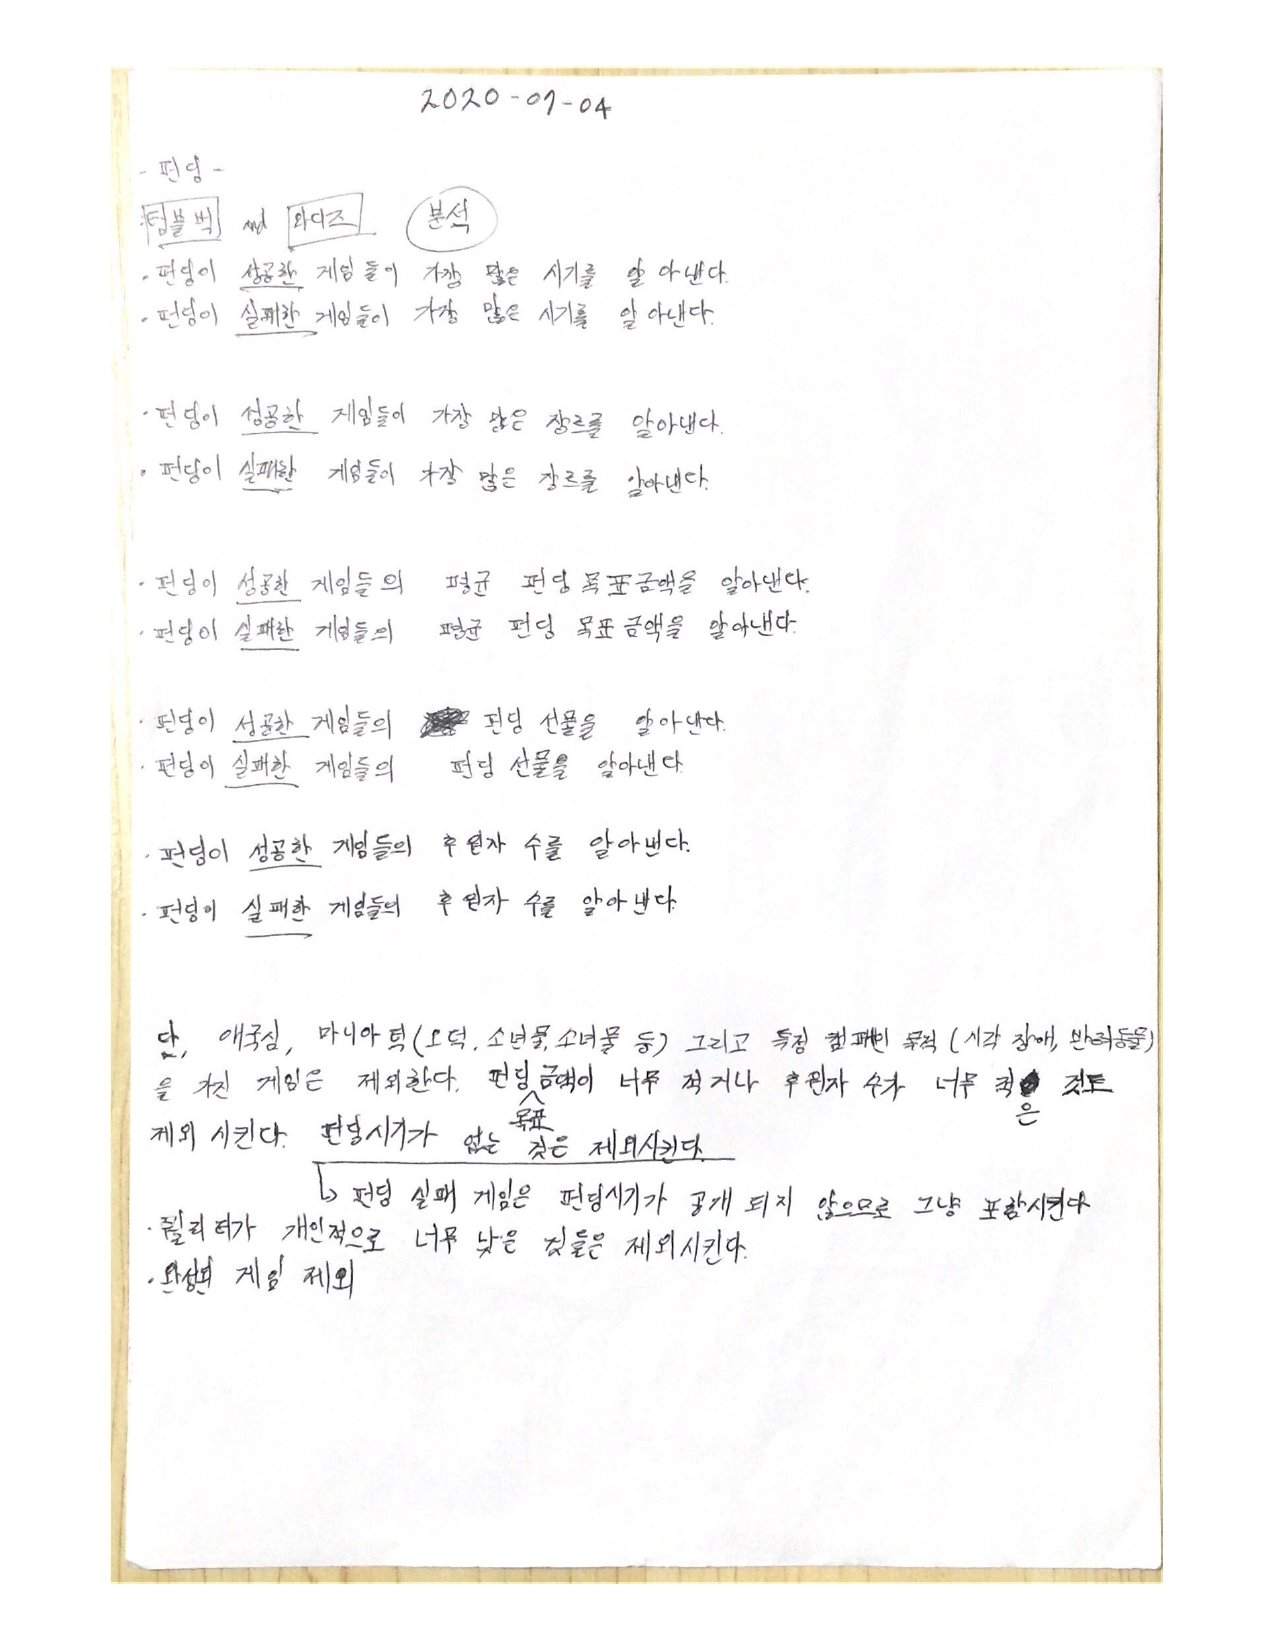 2020-07-04
- 펀딩 -
텀블벅 and 와디즈 분석
· 펀딩이 성공한 게임들이 가장 많은 시기를 알아낸다.
· 펀딩이 실패한 게임들이 가장 많은 시기를 알아낸다.
· 펀딩이 성공한 게임들이 가장 많은 장르를 알아낸다.
· 펀딩이 실패한 게임들이 가장 많은 장르를 알아낸다.
· 펀딩이 성공한 게임들의 평균 펀딩 목표금액을 알아낸다.
· 펀딩이 실패한 게임들의 평균 펀딩 목표금액을 알아낸다.
· 펀딩이 성공한 게임들의 펀딩 선물을 알아낸다.
· 펀딩이 실패한 게임들의 펀딩 선물을 알아낸다
· 펀딩이 성공한 게임들의 후원자 수를 알아낸다.
· 펀딩이 실패한 게임들의 후원자 수를 알아낸다
단, 애국심, 마니아틱(오덕, 소년물, 소녀물 등) 그리고 특정 캠패인 목적 (시각 장애, 반려동물)
을 가진 게임은 제외한다. 펀딩 목표 금액이 너무 적거나 후원자 수가 너무 적은 것도
제외 시킨다. 펀딩시기가 없는 것은 제외시킨다.
↳ 펀딩 실패 게임은 펀딩시기가 공개 되지 않으므로 그냥 포함시킨다
· 퀄리터가 개인적으로 너무 낮은 것들은 제외시킨다.
· 완성된 게임 제외